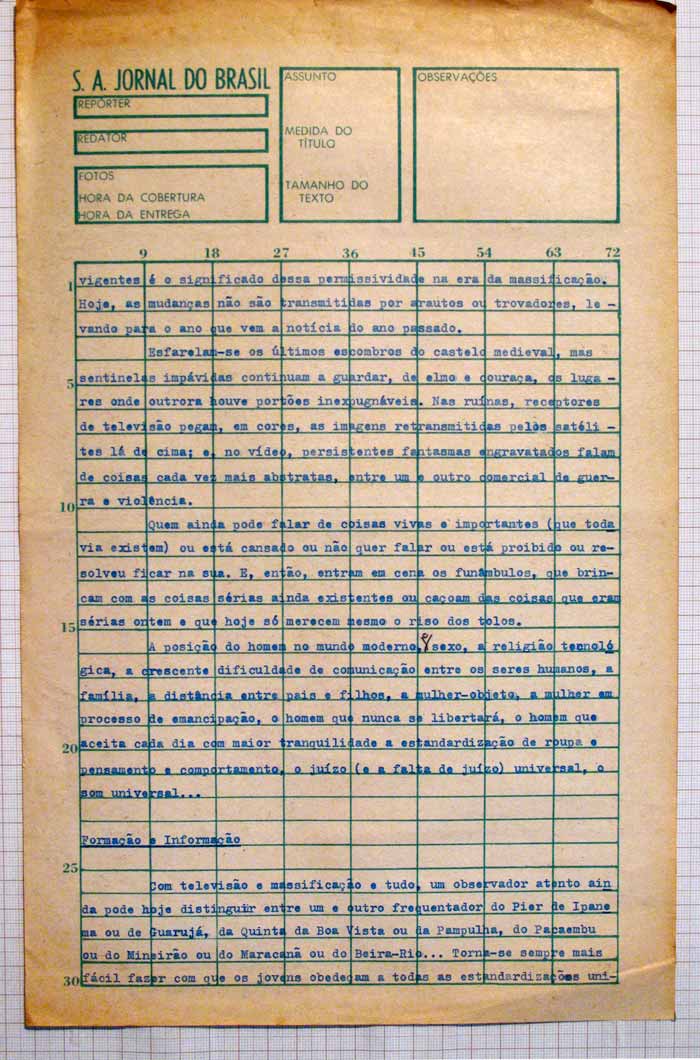 S. A. JORNAL DO BRASIL
REPÓRTER
REDATOR
FOTOS
HORA DA COBERTURA
HORA DA ENTREGA
ASSUNTO
MEDIDA DO
TÍTULO
TAMANHO DO
TEXTO
OBSERVAÇÕES
9 18 27 36 45 54 63 72
1 vigentes é o significado dessa permissividade na era da massificação.
Hoje, as mudanças não são transmitidas por arautos ou trovadores, le -
vando para o ano que vem a notícia do ano passado.
Esfarelam-se os últimos escombros do castelo medieval, mas
5 sentinelas impávidas continuam a guardar, de elmo e couraça, os luga -
res onde outrora houve portões inexpugnáveis. Nas ruínas, receptores
de televisão pegam, em cores, as imagens retransmitidas pelos satéli -
tes lá de cima; e, no vídeo, persistentes fantasmas engravatados falam
de coisas cada vez mais abstratas, entre um e outro comercial de guer-
10 ra e violência.
Quem ainda pode falar de coisas vivas e importantes (que toda
via existem) ou está cansado ou não quer falar ou está proibido ou re-
solveu ficar na sua. E, então, entram em cena os funâmbulos, que brin-
cam com as coisas sérias ainda existentes ou caçoam das coisas que eram
15 sérias ontem e que hoje só merecem mesmo o riso dos tolos.
A posição do homem no mundo moderno, o sexo, a religião tecnoló
gica, a crescente dificuldade de comunicação entre os seres humanos, a
família, a distância entre pais e filhos, a mulher-objeto, a mulher em
processo de emancipação, o homem que nunca se libertará, o homem que
20 aceita cada dia com maior tranquilidade a estandardização de roupa e
pensamento e comportamento, o juízo (e a falta de juízo) universal, o
som universal...
Formação e Informação
25
Com televisão e massificação e tudo, um observador atento ain
da pode hoje distinguir entre um e outro frequentador do Pier de Ipane
ma ou de Guarujá, da Quinta da Boa Vista ou da Pampulha, do Pacaembu
ou do Mineirão ou do Maracanã ou do Beira-Rio... Torna-se sempre mais
30 fácil fazer com que os jovens obedeçam a todas as estandardizações uni-